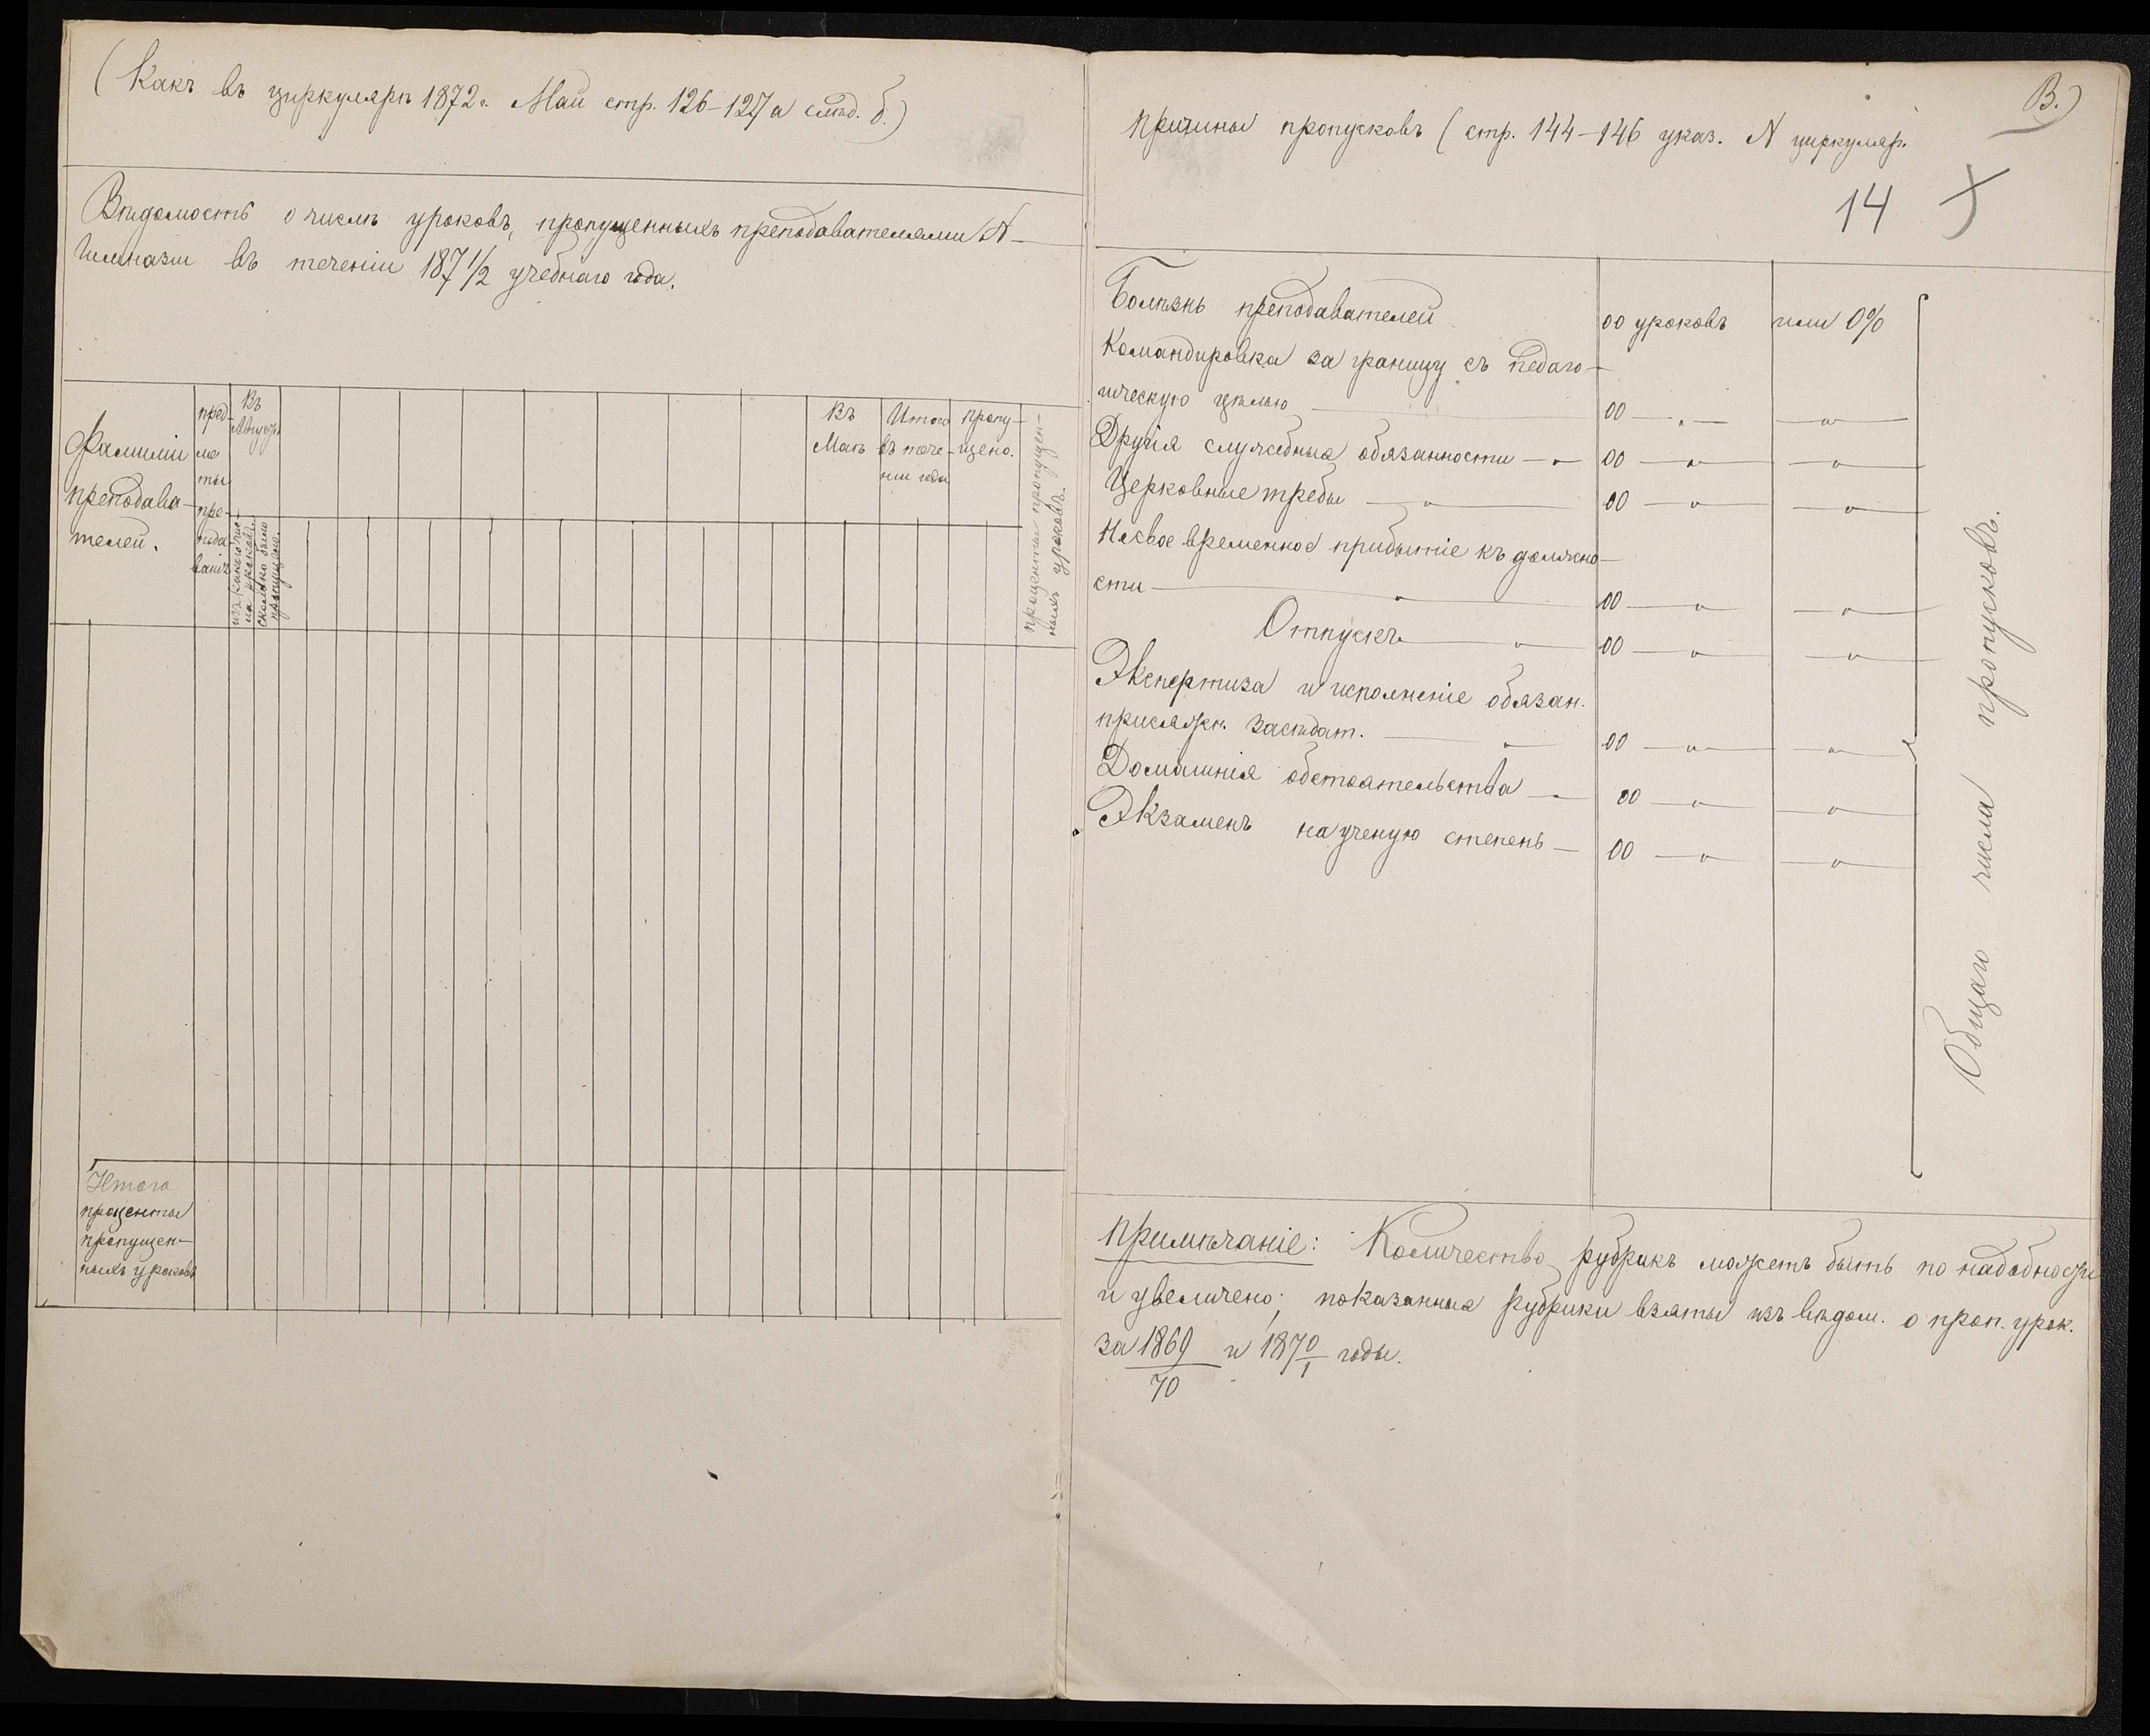 (Какъ въ циркулярѣ 1872 г. Май стр. 126–127 а слѣд. б.)
Вѣдомость о числѣ уроковъ, пропущенныхъ преподавателями N
Гимназіи въ теченіи 187 1/2 учебнаго года.
Фамиліи
преподава-
телей.
пред-
ме
ты
пре-
пода
ванія
Въ
Августѣ
изъ какого чис-
ла уроковъ.
сколько было
пропущено.
Въ
Маѣ
Итого
въ тече-
ніи года
пропу-
щено.
проценты пропущен-
ныхъ уроковъ.
Итого
проценты
пропущен-
ныхъ уроковъ
В.)
Причины пропусковъ (стр. 144–146 указ. N циркуляр.
14
Болѣзнь преподавателей 00 уроковъ или 0%
Командировка за границу съ педаго-
гическую цѣлью — 00 — „ — — „ —
Другія служебныя обязанности — „ 00 — „ — — „ —
Церковные требы — „ — 00 — „ — — „ —
Несвоевременное прибытіе къ должно-
сти — „ — 00 — „ — — „ —
Отпускъ — „ — 00 — „ — — „ —
Экспертиза и исполненіе обязан.
присяжн. засѣдат. — „ — 00 — „ — — „ —
Домашнія обстоятельства — „ 00 — „ — — „ —
Экзаменъ на ученую степень — 00 — „ — — „ —
Общаго числа пропусковъ.
Примѣчаніе: Количество рубрикъ можетъ быть по надобности
и увеличено; показанныя рубрики взяты изъ вѣдом. о проп. урок.
за 1869/70 и 187 0/1 годы.